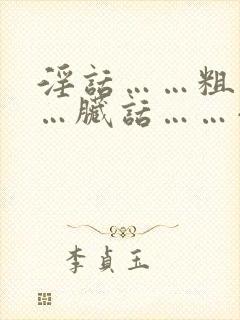 淫話……粗
…臟話……
李貞玉